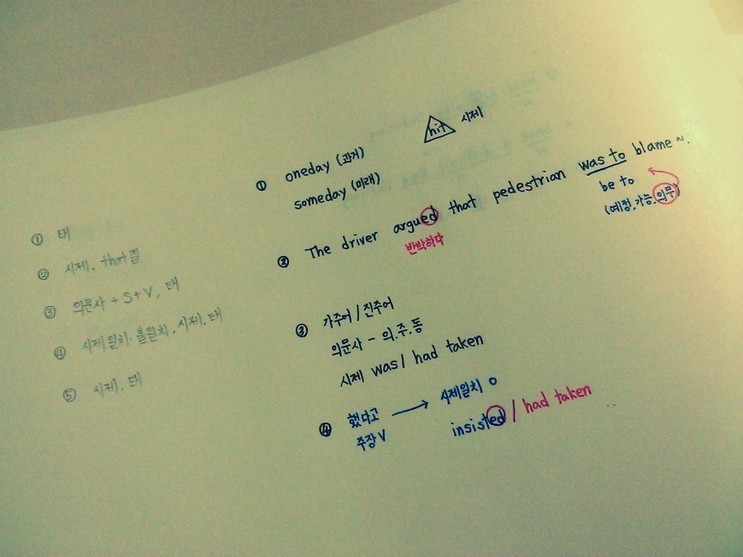 ① 태
② 시제. that절
③ 의문사 + S+V, 태
④ 시제일치·불일치, 시제. 태
⑤ 시제. 태
① oneday (과거)
someday (미래)
hit 시제
② The driver argued that pedestrian was to blame ~.
반박하다
be to
(예정.가능.의무)
③ 가주어 / 진주어
의문사 - 의.주.동
시제 was / had taken
④ 했다고 → 시제일치 o
주장V insisted / had taken